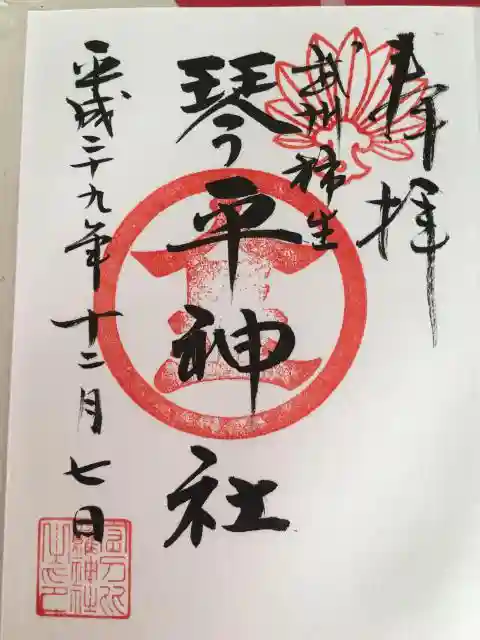 奉拝
武州柿生
琴平神社
平成二十九年十二月七日